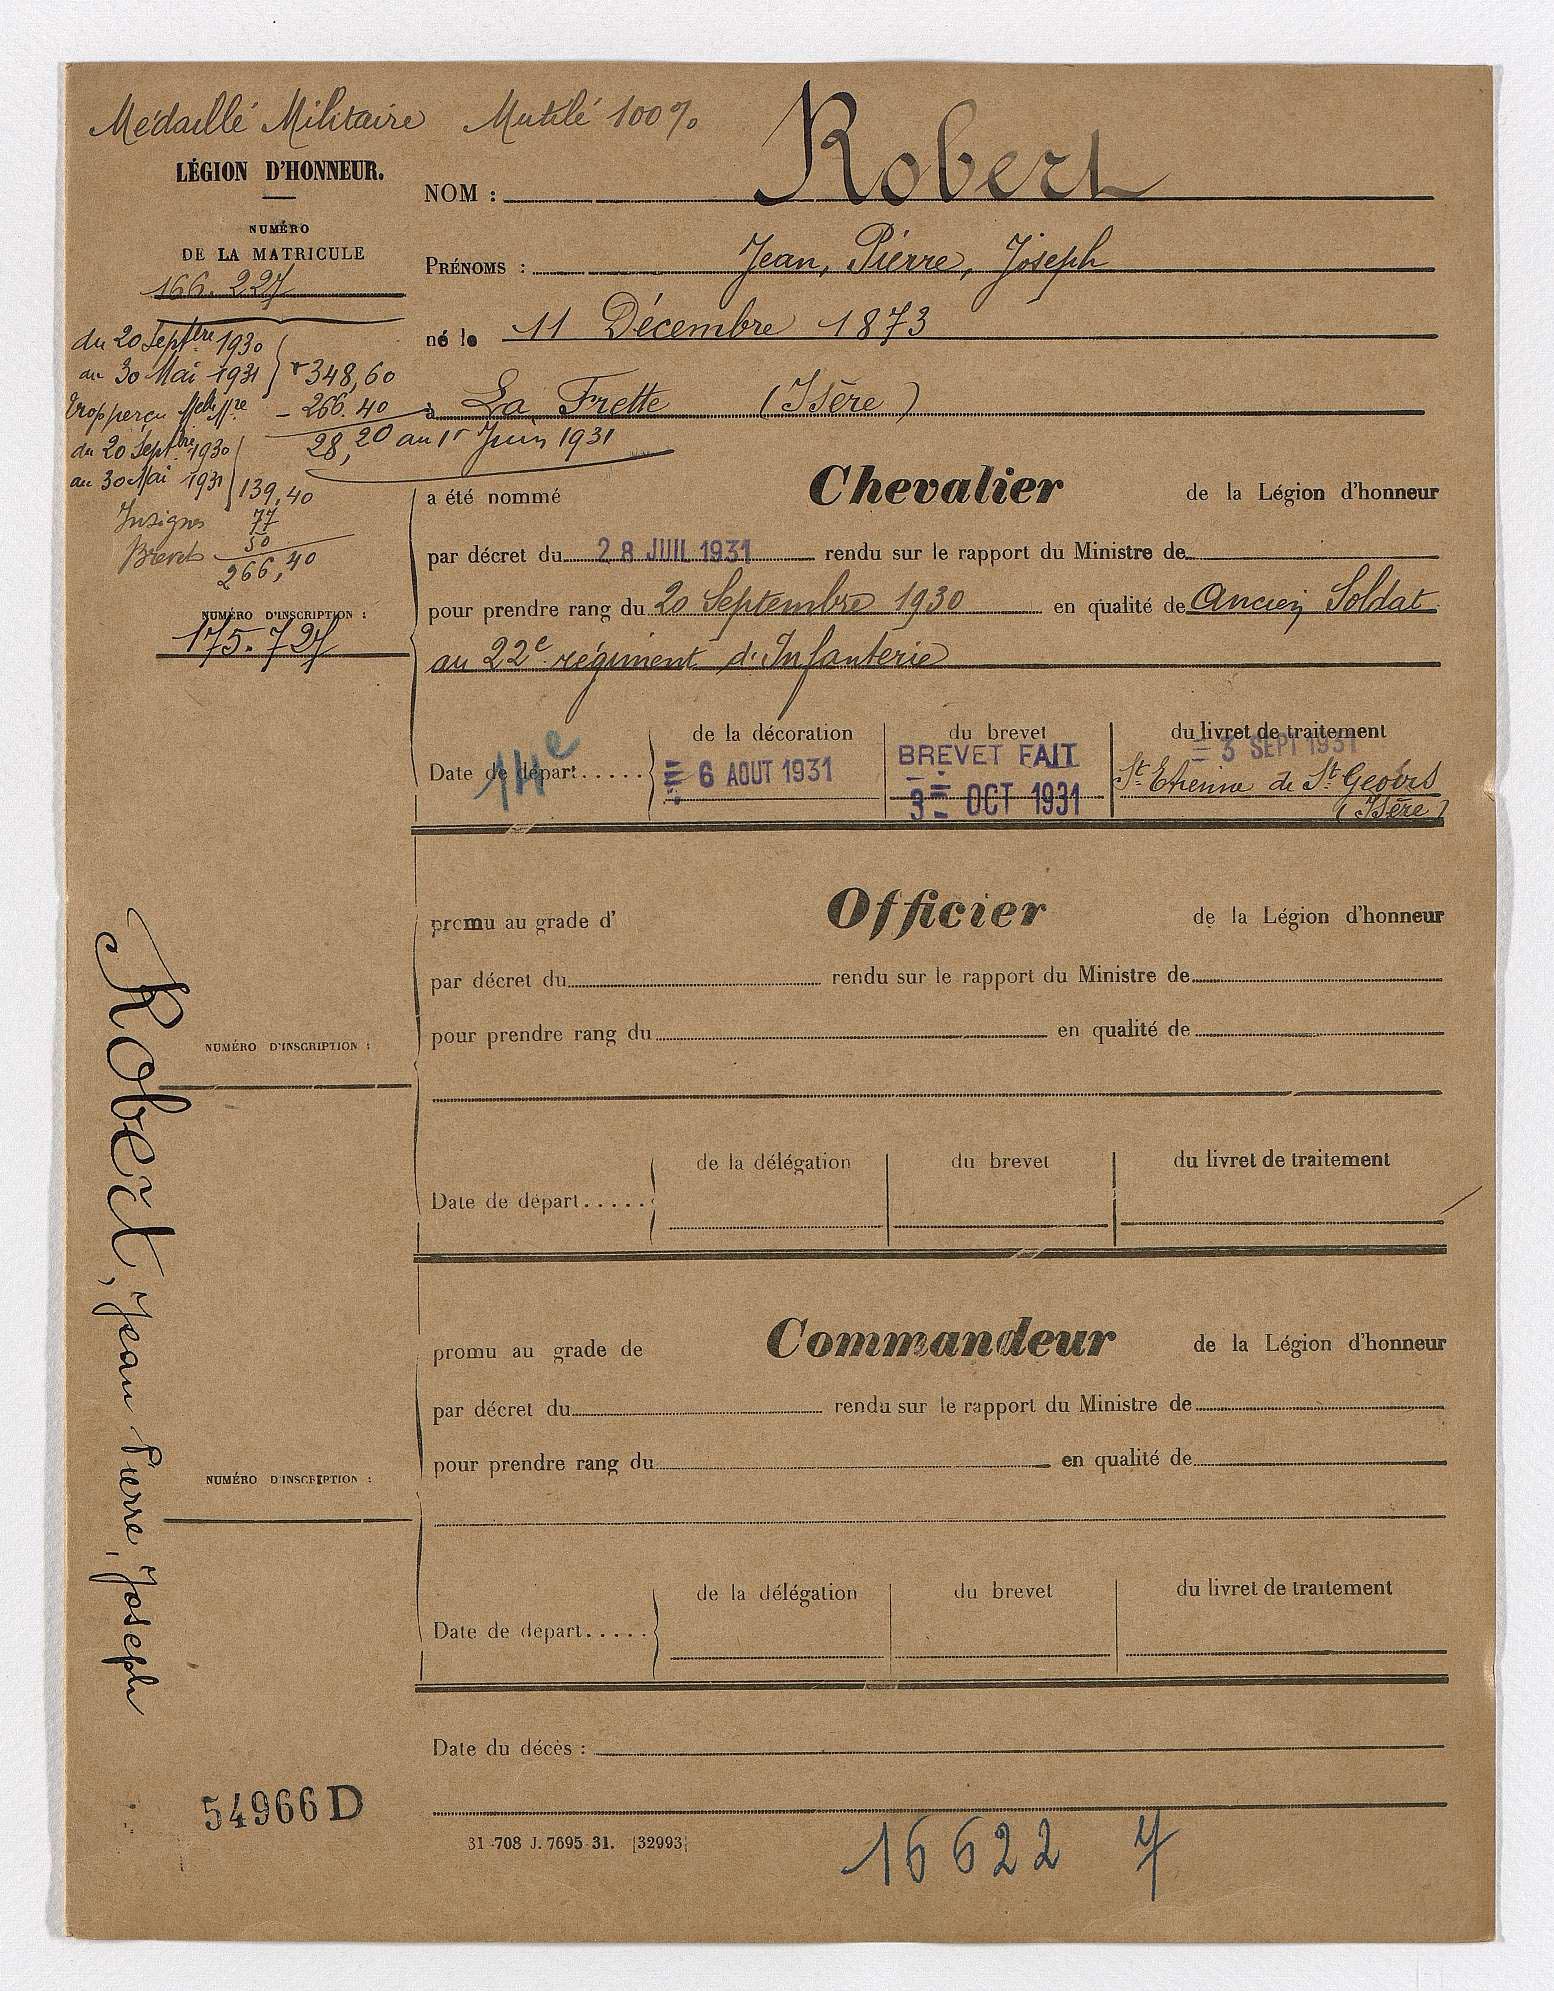 Médaillé Militaire Mutilé 100%
LÉGION D'HONNEUR.
NUMÉRO
DE LA MATRICULE
166.227
NOM : Robert
PRÉNOMS : Jean, Pierre, Joseph
né le 11 Décembre 1873
à La Frette (Isère)
du 20 Septbre 1930
au 30 Mai 1931 } 348,60
trop perçu - 266.40
28,20 au 1r Juin 1931
du 20 Septbre 1930
au 30 Mai 1931 } 139,40
Insignes 77
Brevet 50
266,40
NUMÉRO D'INSCRIPTION :
175.727
a été nommé Chevalier de la Légion d'honneur
par décret du 28 JUIL 1931 rendu sur le rapport du Ministre de
pour prendre rang du 20 Septembre 1930 en qualité de Ancien Soldat
au 22e régiment d'Infanterie
de la décoration du brevet du livret de traitement
Date de départ..... 14e 6 AOUT 1931 BREVET FAIT 3 OCT 1931 3 SEPT 1931
St Etienne de St Geoirs
(Isère)
promu au grade d' Officier de la Légion d'honneur
par décret du rendu sur le rapport du Ministre de
pour prendre rang du en qualité de
NUMÉRO D'INSCRIPTION :
de la délégation du brevet du livret de traitement
Date de départ.....
promu au grade de Commandeur de la Légion d'honneur
par décret du rendu sur le rapport du Ministre de
pour prendre rang du en qualité de
NUMÉRO D'INSCRIPTION :
de la délégation du brevet du livret de traitement
Date de départ.....
Date du décès :
Robert, Jean Pierre, Joseph
54966 D
31-708 J. 7695-31. [32993]
16622 7